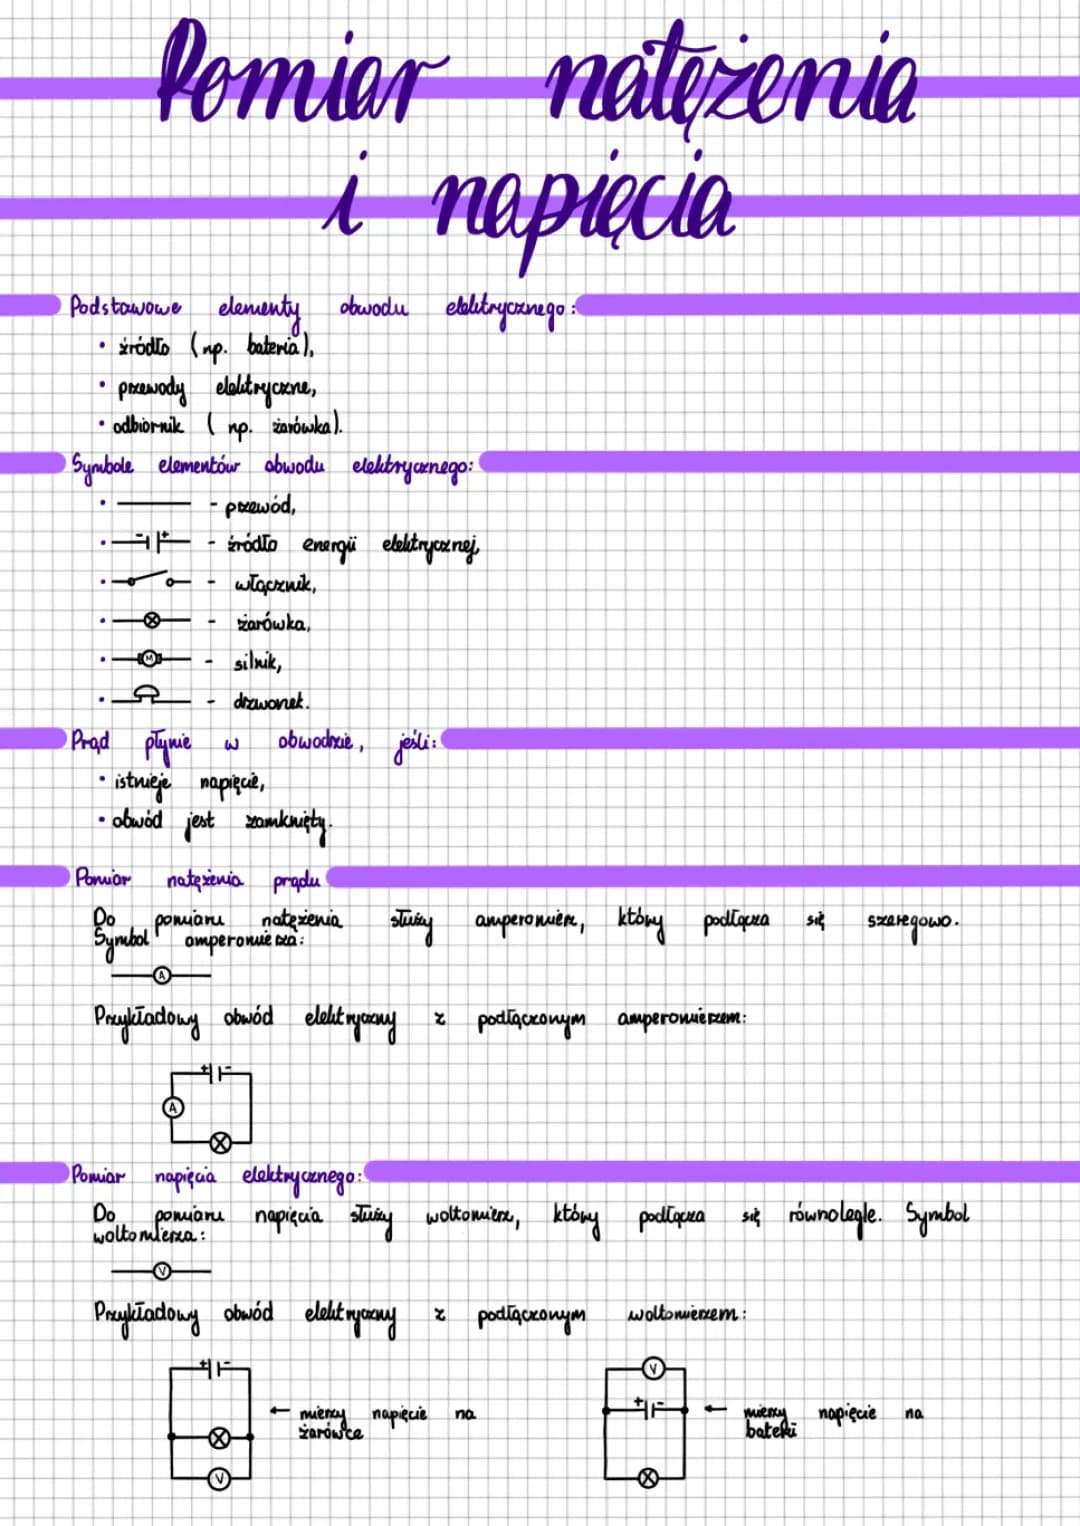 Pomiar natężenia
i napięcia
Podstawowe elementy obwodu elektrycznego:
• źródło (np. bateria),
• przewody elektryczne,
• odbiornik (np. żarówka).
Symbole elementów obwodu elektrycznego:
• - przewód,
• - + - źródło energii elektrycznej,
• - włącznik,
• - żarówka,
• M - silnik,
• - dzwonek.
Prąd płynie w obwodzie, jeśli:
• istnieje napięcie,
• obwód jest zamknięty.
Pomiar natężenia prądu
Do pomiaru natężenia służy amperomierz, który podłącza się szeregowo.
Symbol amperomierza:
A
Przykładowy obwód elektryczny z podłączonym amperomierzem:
+ -
A
Pomiar napięcia elektrycznego:
Do pomiaru napięcia służy woltomierz, który podłącza się równolegle. Symbol
woltomierza:
V
Przykładowy obwód elektryczny z podłączonym woltomierzem:
+ -
← mierzy napięcie na
żarówce
V
V
+ -
← mierzy napięcie na
baterii